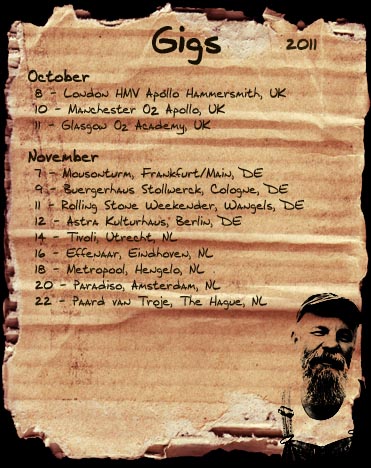 Gigs 2011
October
8 - London HMV Apollo Hammersmith, UK
10 - Manchester O2 Apollo, UK
11 - Glasgow O2 Academy, UK
November
7 - Mousonturm, Frankfurt/Main, DE
9 - Buergerhaus Stollwerck, Cologne, DE
11 - Rolling Stone Weekender, Wangels, DE
12 - Astra Kulturhaus, Berlin, DE
14 - Tivoli, Utrecht, NL
16 - Effenaar, Eindhoven, NL
18 - Metropool, Hengelo, NL
20 - Paradiso, Amsterdam, NL
22 - Paard van Troje, The Hague, NL